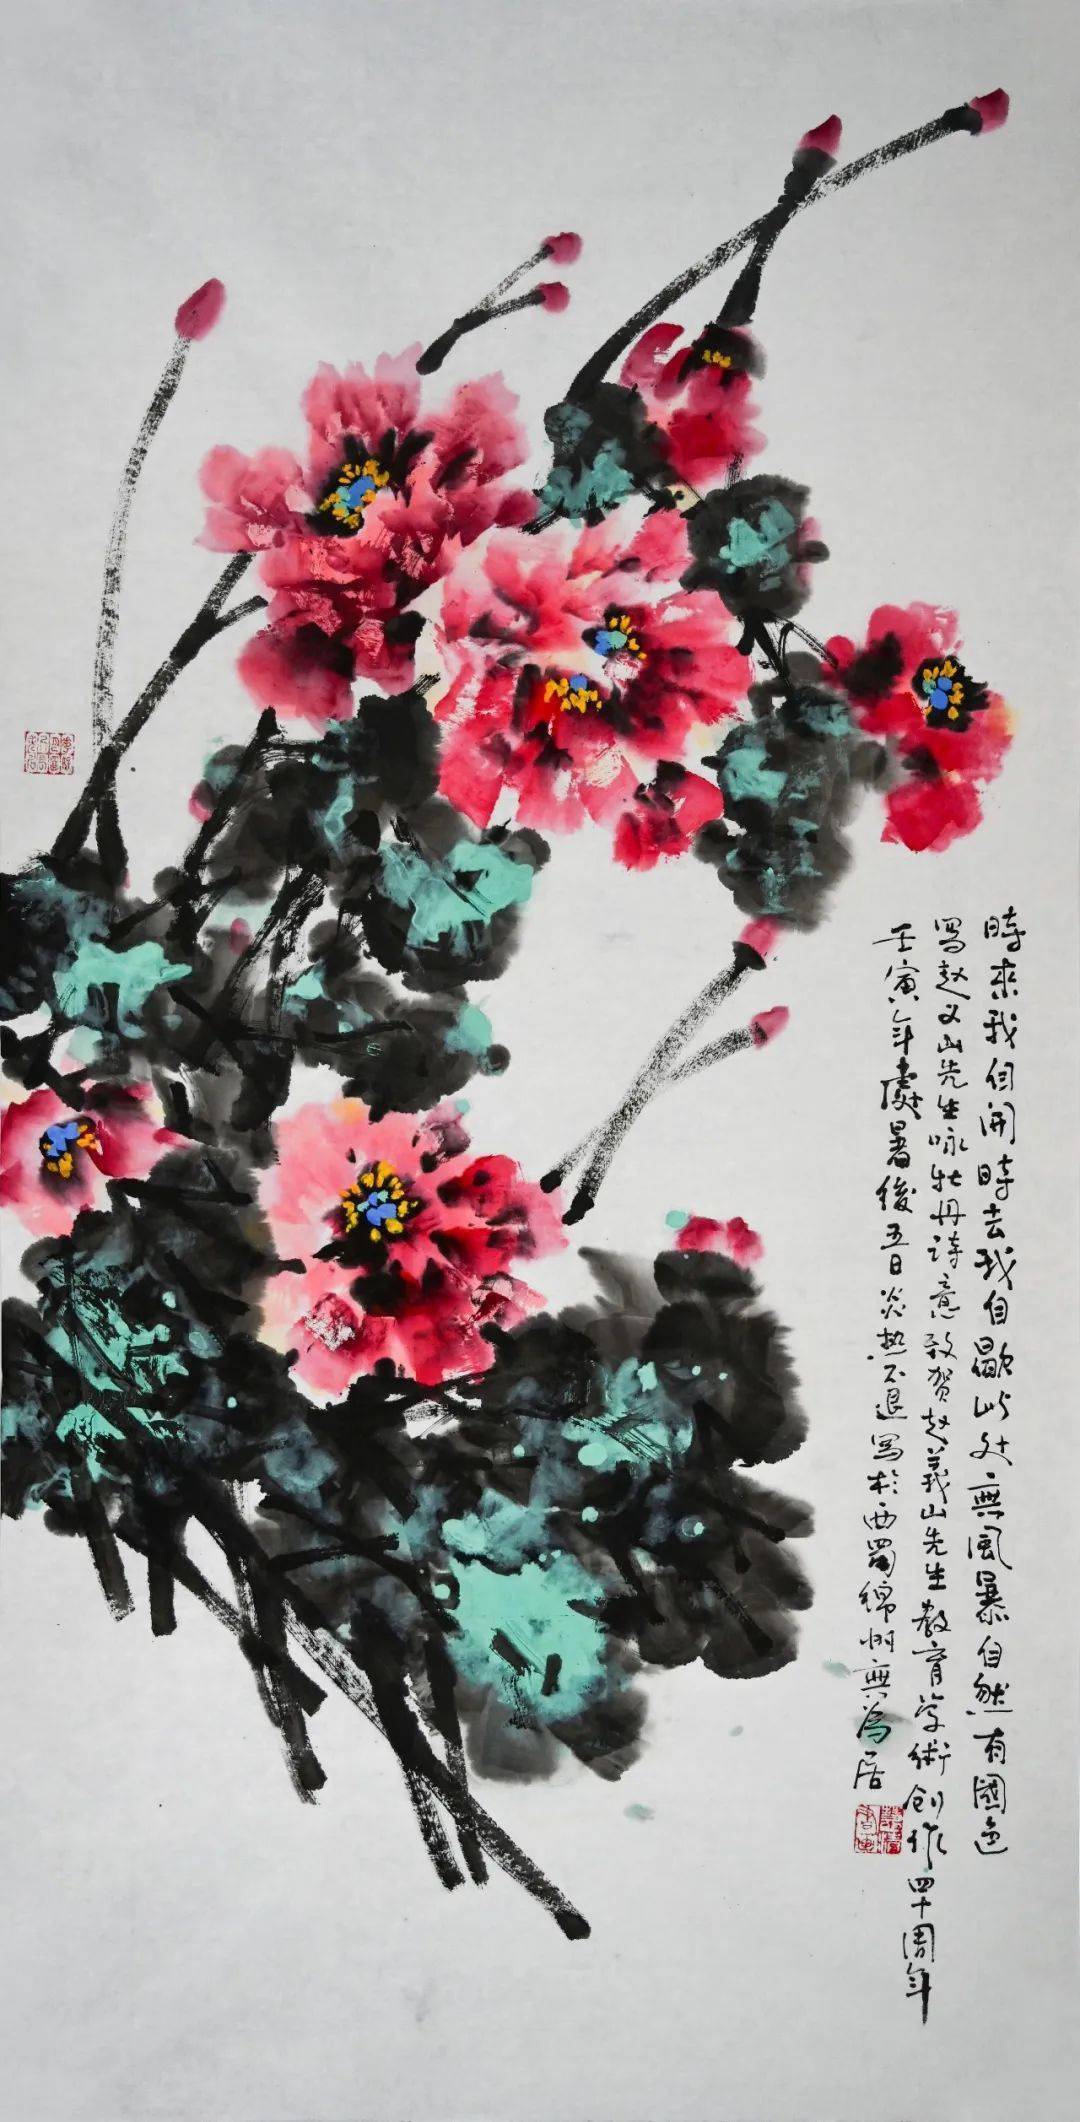 時來我自開時去我自歇此处無風暴自然有國色
寫赵义山先生咏牡丹诗意致贺赵義山先生教育学術创作四十周年
壬寅年處暑後五日炎热不退寫於西蜀绵州無為居